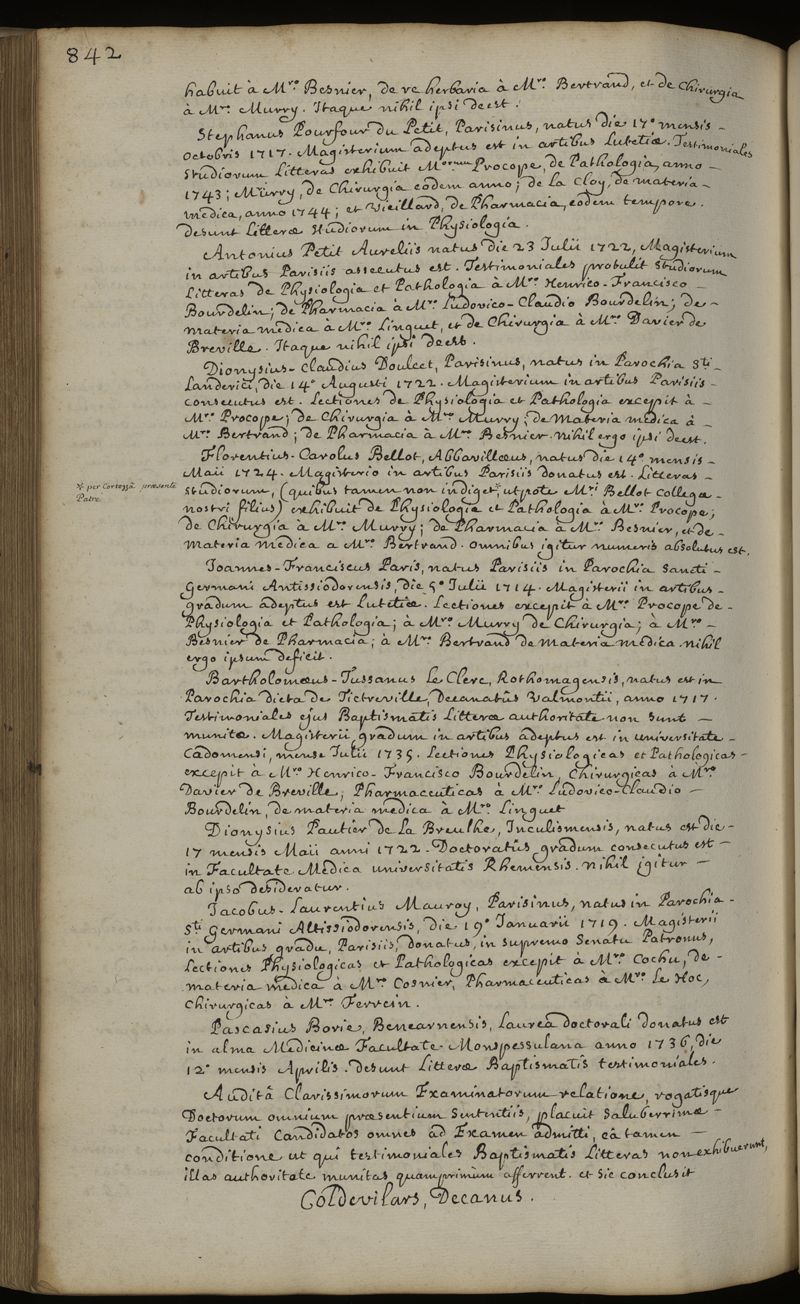 842
habuit à Mro Besnier, de re herbaria à Mro Bertrand, et de Chirurgia
à Mro Murry. Itaque nihil ipsi deest.
Stephanus Pourfour du Petit, Parisinus, natus die 17° mensis
octobris 1717. Magisterium adeptus est in artibus Lutetiæ. Testimoniales
studiorum Litteras exhibuit Morum Procope, de Pathologia, anno
1743; Murry, de Chirurgia eodem anno; de la Cloy, de materia
medica, anno 1744; et Vieillard, de Pharmacia, eodem tempore.
desunt Litteræ studiorum in Physiologia.
Antonius Petit Aureliis natus die 23 Julii 1722, Magisterium
in artibus Parisiis assecutus est. Testimoniales protulit studiorum
Litteras de Physiologia et Pathologia à Mro Henrico-Francisco
Bourdelin; de Pharmacia à Mro Ludovico-Claudio Bourdelin; de
materia medica à Mro Linguet, et de Chirurgia à Mro Davier de
Breville. Itaque nihil ipsi deest.
Dionysius-Claudius Doulcet, Parisinus, natus in Parochia Sti
Landerici, die 14° Augusti 1722. Magisterium in artibus Parisiis
consecutus est. Lectiones de Physiologia et Pathologia excepit à
Mro Procope; de Chirurgia à Mro Murry; de Materia medica à
Mro Bertrand; de Pharmacia à Mro Besnier. nihil ergo ipsi deest.
Florentius-Carolus Bellot, Abbavillæus, natus die 14° mensis
Maii 1724. Magisterio in artibus Parisiis donatus est. Litteras
* per Cortezzā præsente
Patre
studiorum, (quibus tamen non indiget,* utpote Mri Bellot Collegæ
nostri filius) exhibuit de Physiologia et Pathologia à Mro Procope;
de Chirurgia à Mro Murry; de Pharmacia à Mro Besnier, et de
materia medica a Mro Bertrand. omnibus igitur numeris absolutus est.
Joannes-Franciscus Paris, natus Parisiis in Parochia Sancti
Germani Antissiodorensis, die 5° Julii 1714. Magisterii in artibus
gradum adeptus est Lutetiæ. Lectiones excepit à Mro Procope de
Physiologia et Pathologia; à Mro Murry de Chirurgia; à Mro
Besnier de Pharmacia; à Mro Bertrand de materia medica. nihil
ergo ipsum deficit.
Bartholomæus-Tussanus Le Clerc, Rothomagensis, natus est in
Parochia dicta de Tictreville, Decanatûs Valmontii, anno 1717.
Testimoniales ejus Baptismatis Litteræ authoritate non sunt
munitæ. Magisterii gradum in artibus adeptus est in universitate
Cadomensi, mense Julii 1735. Lectiones Physiologicas et Pathologicas
excepit à Mro Henrico-Francisco Bourdelin, Chirurgicas à Mro
Davier de Breville, Pharmaceuticas à Mro Ludovico-Claudio
Bourdelin, de materia medica à Mro Linguet
Dionysius Pautier de la Breulhe, Inculismensis, natus est die
17 mensis Maii anni 1722. Doctoratûs gradum consecutus est
in Facultate Medica universitatis Rhemensis. nihil igitur
ab ipso desideratur.
Jacobus-Laurentius Mauroy, Parisinus, natus in Parochia
Sti Germani Altissiodorensis, die 19° Januarii 1719. Magisterii
in artibus gradu, Parisiis, donatus, in supremo Senatu Patronus,
Lectiones Physiologicas et Pathologicas excepit à Mro Cochu, de
materia medica à Mro Cosnier, Pharmaceuticas à Mro Le Hoc,
Chirurgicas à Mro Ferrein.
Pascasius Borie, Benearnensis, Laurea doctorali donatus est
in alma Medicinæ Facultate Monspessulana anno 1736, die
12° mensis Aprilis. desunt Litteræ Baptismatis testimoniales.
Auditâ Clarissimorum Examinatorum relatione, rogatisque
Doctorum omnium præsentium Sententiis, placuit Saluberrimæ
Facultati Candidatos omnes ad Examen admitti, eâ tamen
conditione ut qui testimoniales Baptismatis Litteras non exhibuerunt,
illas authoritate munitas quamprimùm afferrent. et sic conclusit
Coldevilars, Decanus.